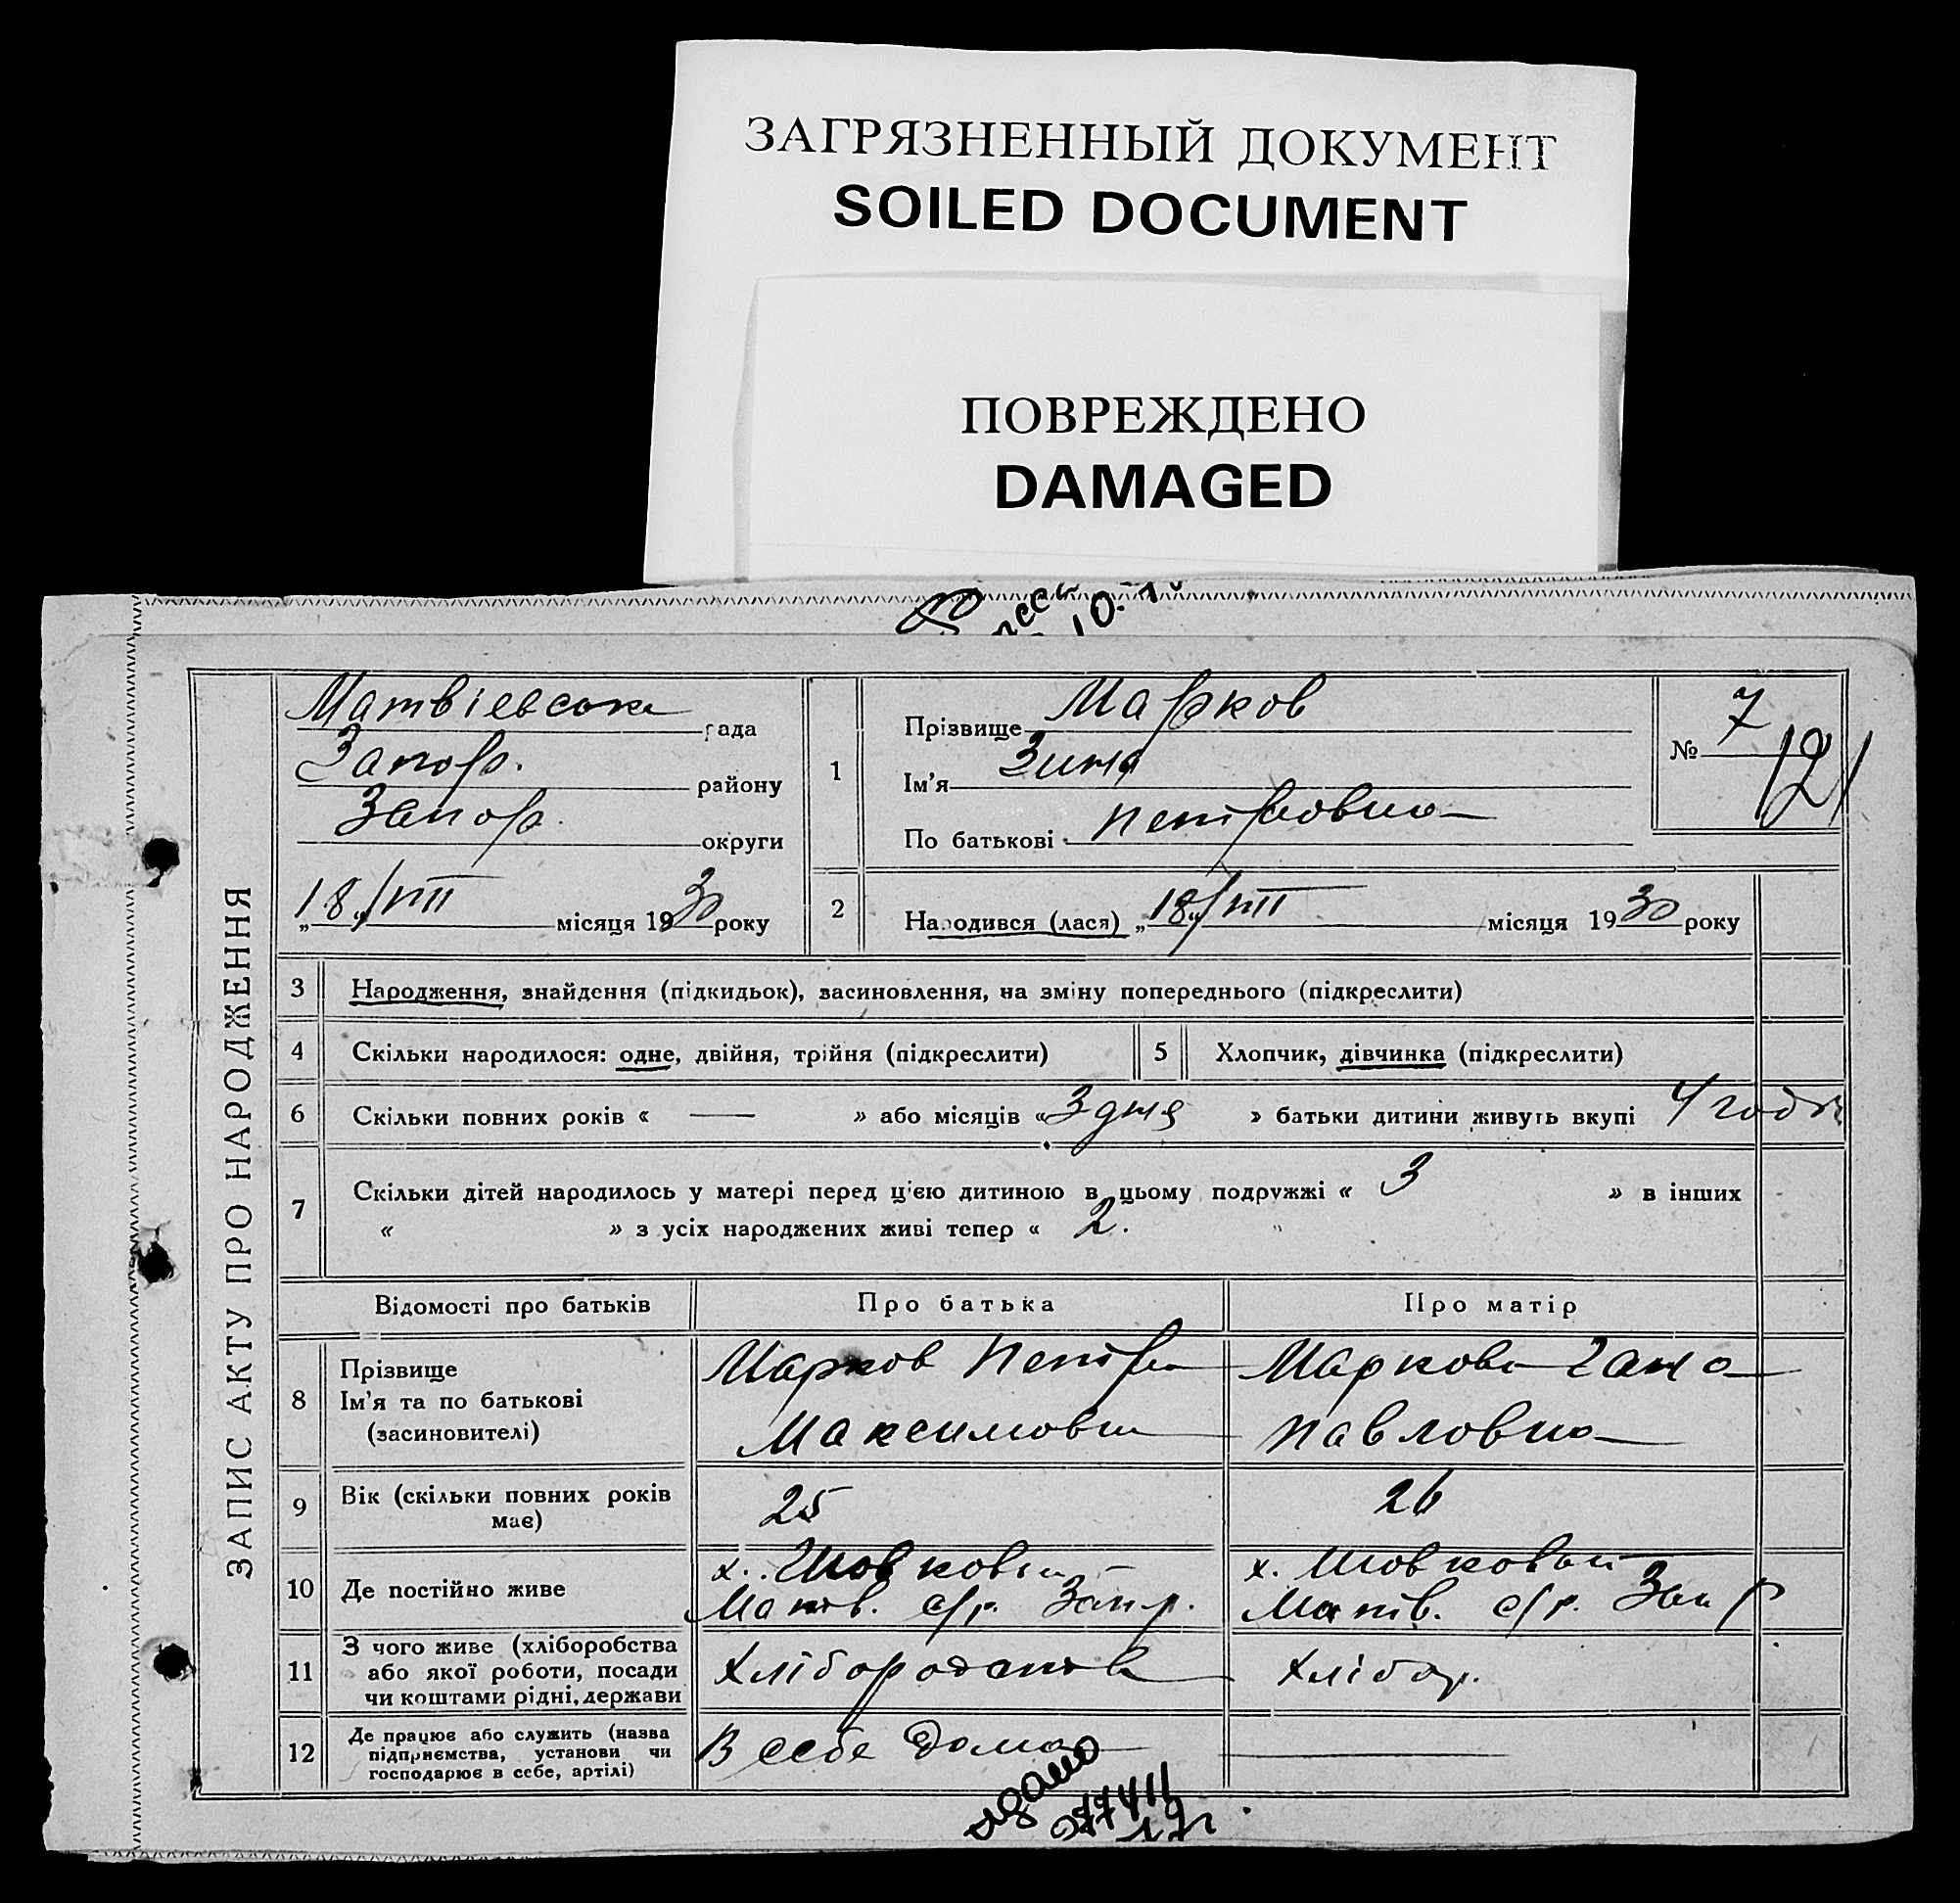 ЗАГРЯЗНЕННЫЙ ДОКУМЕНТ
SOILED DOCUMENT
ПОВРЕЖДЕНО
DAMAGED
10.
ЗАПИС АКТУ ПРО НАРОДЖЕННЯ
Матвіевська рада
Запор. району
Запор. округи
„18“/VIII місяця 1930 року
1
Прізвище Марков
Ім'я Зина
По батькові Петровна
№ 7
121
2
Народився (лася) „18“/VIII місяця 1930 року
3 Народження, знайдення (підкидьок), засиновлення, на зміну попереднього (підкреслити)
4 Скільки народилося: одне, двійня, трійня (підкреслити)
5 Хлопчик, дівчинка (підкреслити)
6 Скільки повних років « — » або місяців « 3 дня » батьки дитини живуть вкупі 4 годы
7 Скільки дітей народилось у матері перед цією дитиною в цьому подружжі « 3 » в інших
« » з усіх народжених живі тепер « 2. "
Відомості про батьків Про батька Про матір
8 Прізвище
Ім'я та по батькові
(засиновителі)
Марков Петро
Максимови
Маркова Гана
Павловна
9 Вік (скільки повних років
має)
25
26
10 Де постійно живе
х. Шовковый
Матв. с/р. Зап. р.
х. Шовковый
Матв. с/р. Зап р
11 З чого живе (хліборобства
або якої роботи, посади
чи коштами рідні, держави
Хлібороба
хлібор.
12 Де працює або служить (назва
підприємства, установи чи
господарює в себе, артілі)
В себе дома
—
видано
277411